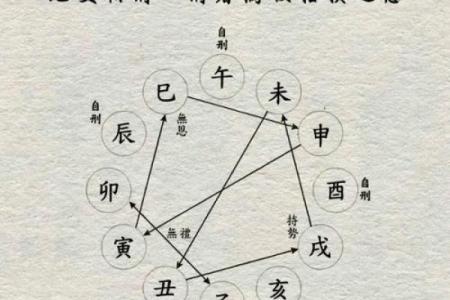 自刑
午
巳
未
自刑
無恩
申
辰
卯
酉
自刑
持勢
無禮
寅
戌
丑
子
亥